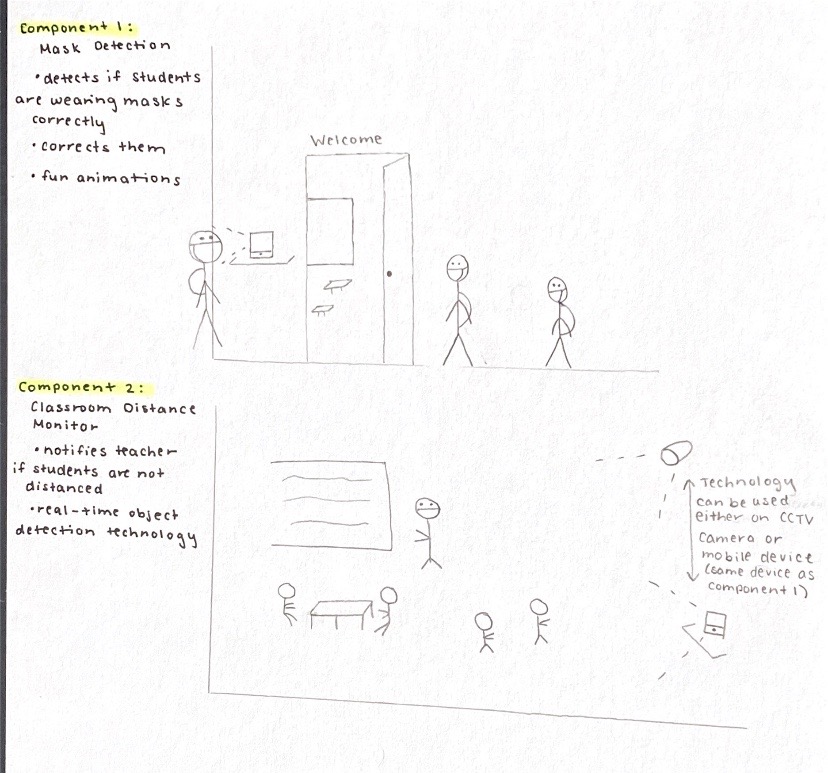 Component 1:
Mask Detection
• detects if students
are wearing masks
correctly
• corrects them
• fun animations
Welcome
Component 2:
Classroom Distance
Monitor
• notifies teacher
if students are not
distanced
• real-time object
detection technology
Technology
can be used
either on CCTV
camera or
mobile device
(same device as
component 1)